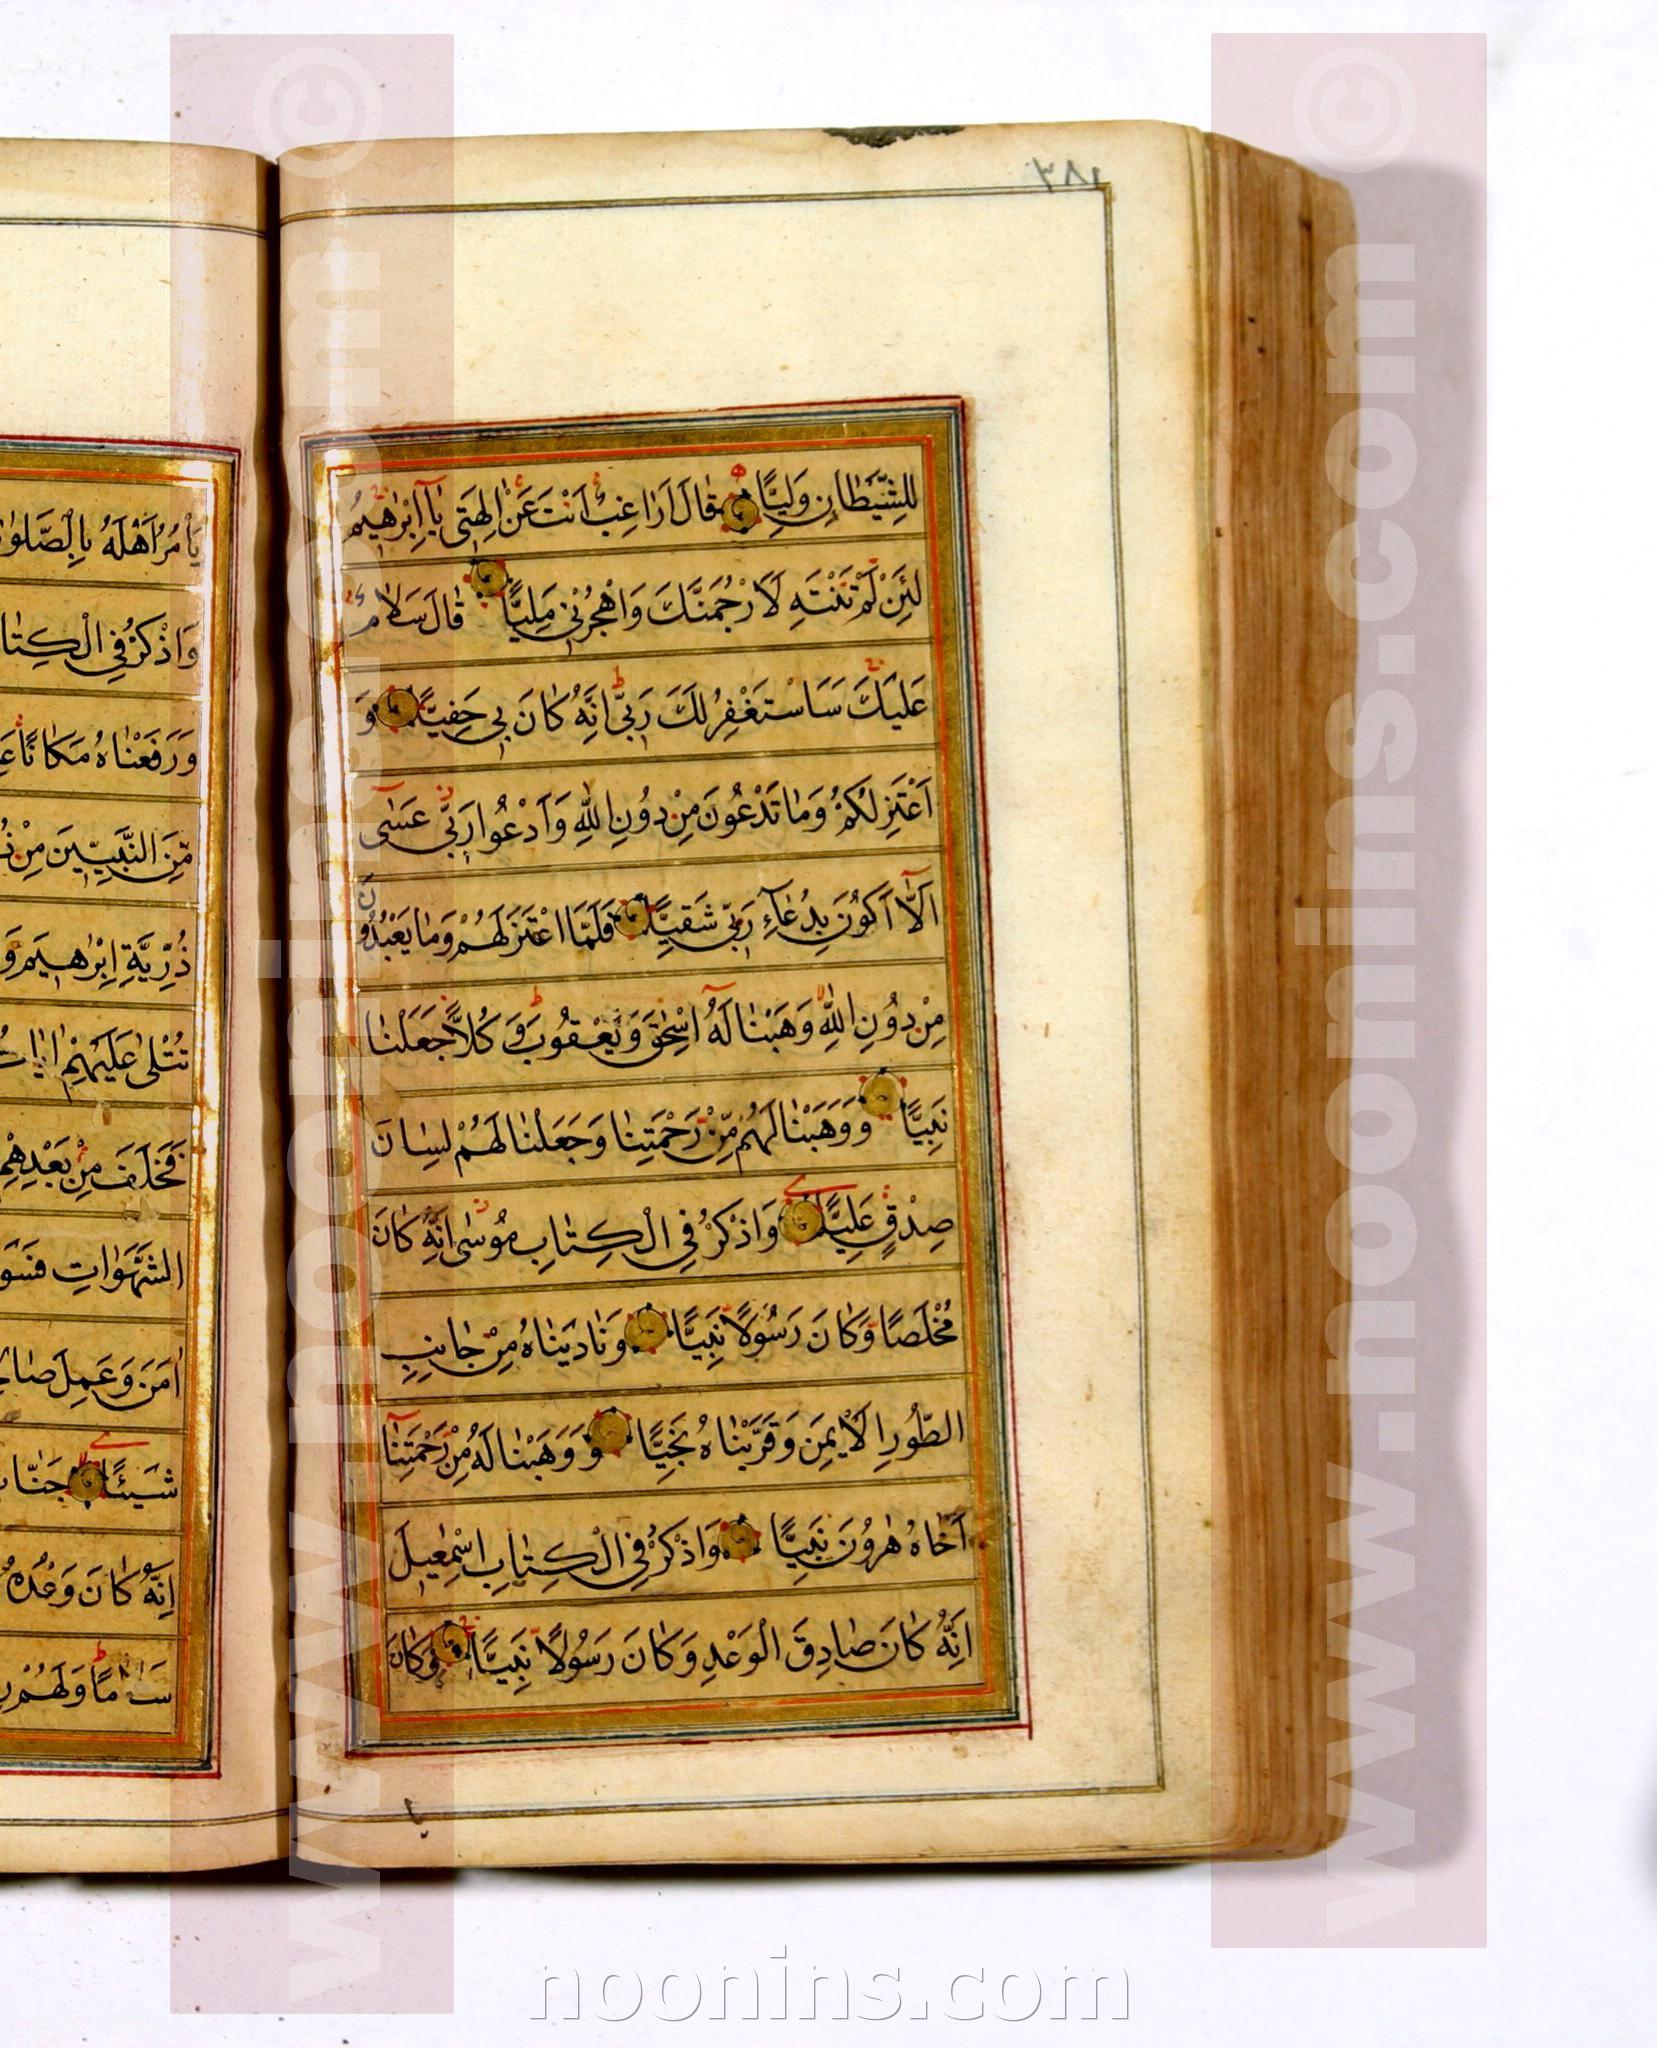 ١٨٦
لِلشَّيْطَانِ وَلِيًّا قَالَ أَرَاغِبٌ أَنْتَ عَنْ الِهَتِي يَا اِبْرٰهِيمُ
لَئِنْ لَمْ تَنْتَهِ لَاَرْجُمَنَّكَ وَاهْجُرْنِي مَلِيًّا قَالَ سَلَامٌ
عَلَيْكَ سَاَسْتَغْفِرُ لَكَ رَبِّي اِنَّهُ كَانَ بِي حَفِيًّا وَ
اَعْتَزِلُكُمْ وَمَا تَدْعُونَ مِنْ دُونِ اللّٰهِ وَاَدْعُوا رَبِّي عَسٰى
اَلَّا اَكُونَ بِدُعَآءِ رَبِّي شَقِيًّا فَلَمَّا اعْتَزَلَهُمْ وَمَا يَعْبُدُونَ
مِنْ دُونِ اللّٰهِ وَهَبْنَا لَهُ اِسْحٰقَ وَيَعْقُوبَ وَكُلًّا جَعَلْنَا
نَبِيًّا وَوَهَبْنَا لَهُمْ مِنْ رَحْمَتِنَا وَجَعَلْنَا لَهُمْ لِسَانَ
صِدْقٍ عَلِيًّا وَاذْكُرْ فِي الْكِتَابِ مُوسٰى اِنَّهُ كَانَ
مُخْلَصًا وَكَانَ رَسُولًا نَبِيًّا وَنَادَيْنَاهُ مِنْ جَانِبِ
الطُّورِ الْاَيْمَنِ وَقَرَّبْنَاهُ نَجِيًّا وَوَهَبْنَا لَهُ مِنْ رَحْمَتِنَآ
اَخَاهُ هٰرُونَ نَبِيًّا وَاذْكُرْ فِي الْكِتَابِ اِسْمٰعِيلَ
اِنَّهُ كَانَ صَادِقَ الْوَعْدِ وَكَانَ رَسُولًا نَبِيًّا وَكَانَ
يَأْمُرُ اَهْلَهُ بِالصَّلٰو
وَاذْكُرْ فِي الْكِتَا
وَرَفَعْنَاهُ مَكَانًا
مِنَ النَّبِيِّينَ مِنْ
ذُرِّيَّةِ اِبْرٰهِيمَ وَ
تُتْلٰى عَلَيْهِمْ اٰيَاتُ
فَخَلَفَ مِنْ بَعْدِهِمْ
الشَّهَوَاتِ فَسَوْ
اٰمَنَ وَعَمِلَ صَالِ
شَيْئًا جَنَّا
اِنَّهُ كَانَ وَعْدُهُ
سَلَامًا وَلَهُمْ
www.noonins.com ©
www.noonins.com ©
noonins.com